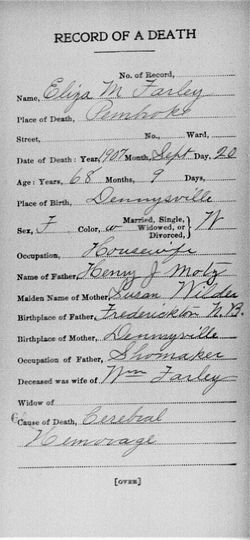 RECORD OF A DEATH
No. of Record,
Name, Eliza M Farley
Place of Death, Pembroke
Street, No., Ward,
Date of Death: Year, 1907 Month, Sept Day, 20
Age: Years, 68 Months, 9 Days,
Place of Birth, Dennysville
Sex, F Color, w Married, Single, Widowed, or Divorced, W
Occupation, Housewife
Name of Father, Henry J Motz
Maiden Name of Mother, Susan Wilder
Birthplace of Father, Frederickton N.B.
Birthplace of Mother, Dennysville
Occupation of Father, Shomaker
Deceased was wife of Wm Farley
Widow of
Cause of Death, Cerebral
Hemorage
[OVER]